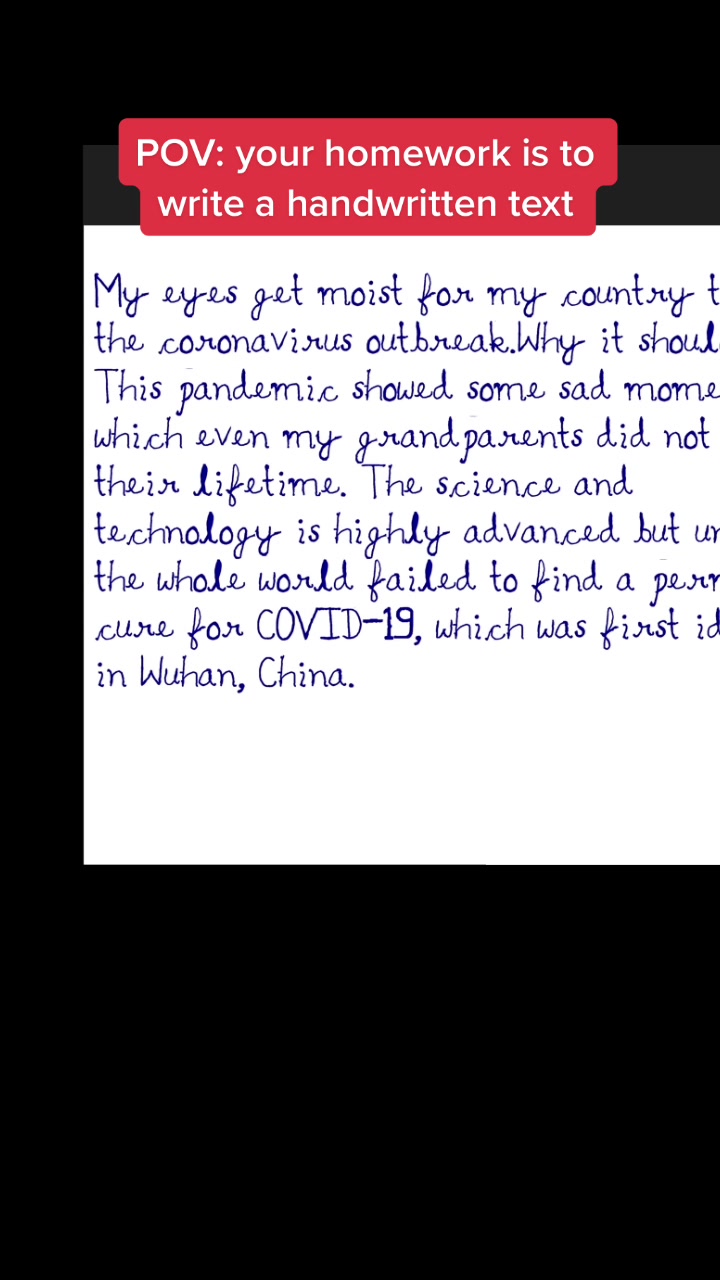 POV: your homework is to
write a handwritten text
My eyes get moist for my country
the coronavirus outbreak.Why it
This pandemic showed some sad
which even my grandparents did not
their lifetime. The science and
technology is highly advanced but
the whole world failed to find a
cure for COVID-19, which was first
in Wuhan, China.